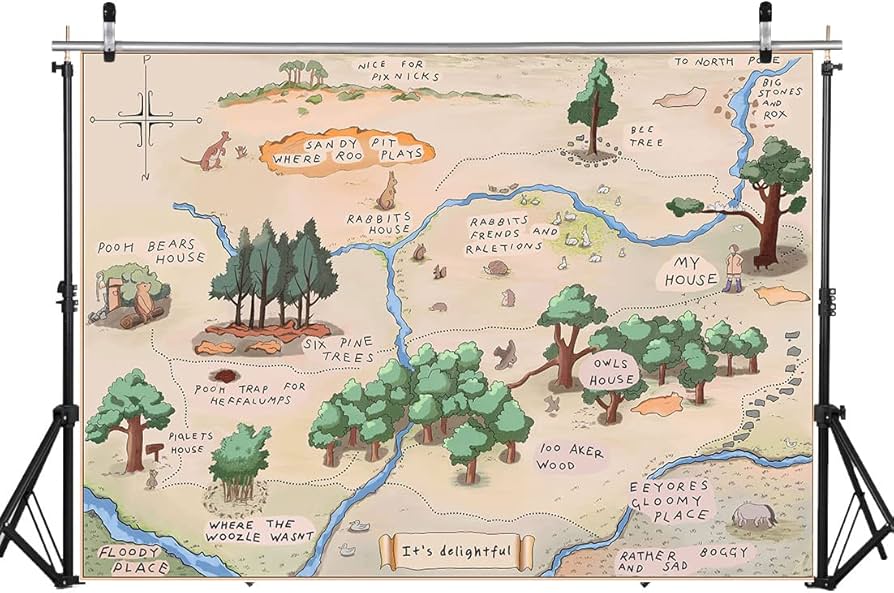 P
NICE FOR
PIXNICKS
TO NORTH POLE
BIG
STONES
AND
ROX
BEE
TREE
SANDY PIT
WHERE ROO PLAYS
RABBITS
HOUSE
RABBITS
FRENDS AND
RALETIONS
POOH BEARS
HOUSE
MY
HOUSE
SIX PINE
TREES
OWLS
HOUSE
POOH TRAP FOR
HEFFALUMPS
PIGLETS
HOUSE
100 AKER
WOOD
EEYORES
GLOOMY
PLACE
WHERE THE
WOOZLE WASNT
FLOODY
PLACE
It's delightful
RATHER BOGGY
AND SAD